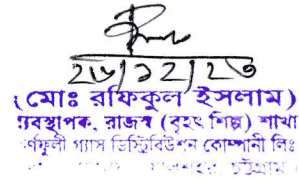 ২৬/১২/২৩
(মোঃ রফিকুল ইসলাম)
্যবস্থাপক, রাজস্ব (বৃহৎ শিল্প) শাখা
র্ণফুলী গ্যাস ডিস্ট্রিবিউশন কোম্পানী লিঃ
চট্টগ্রাম